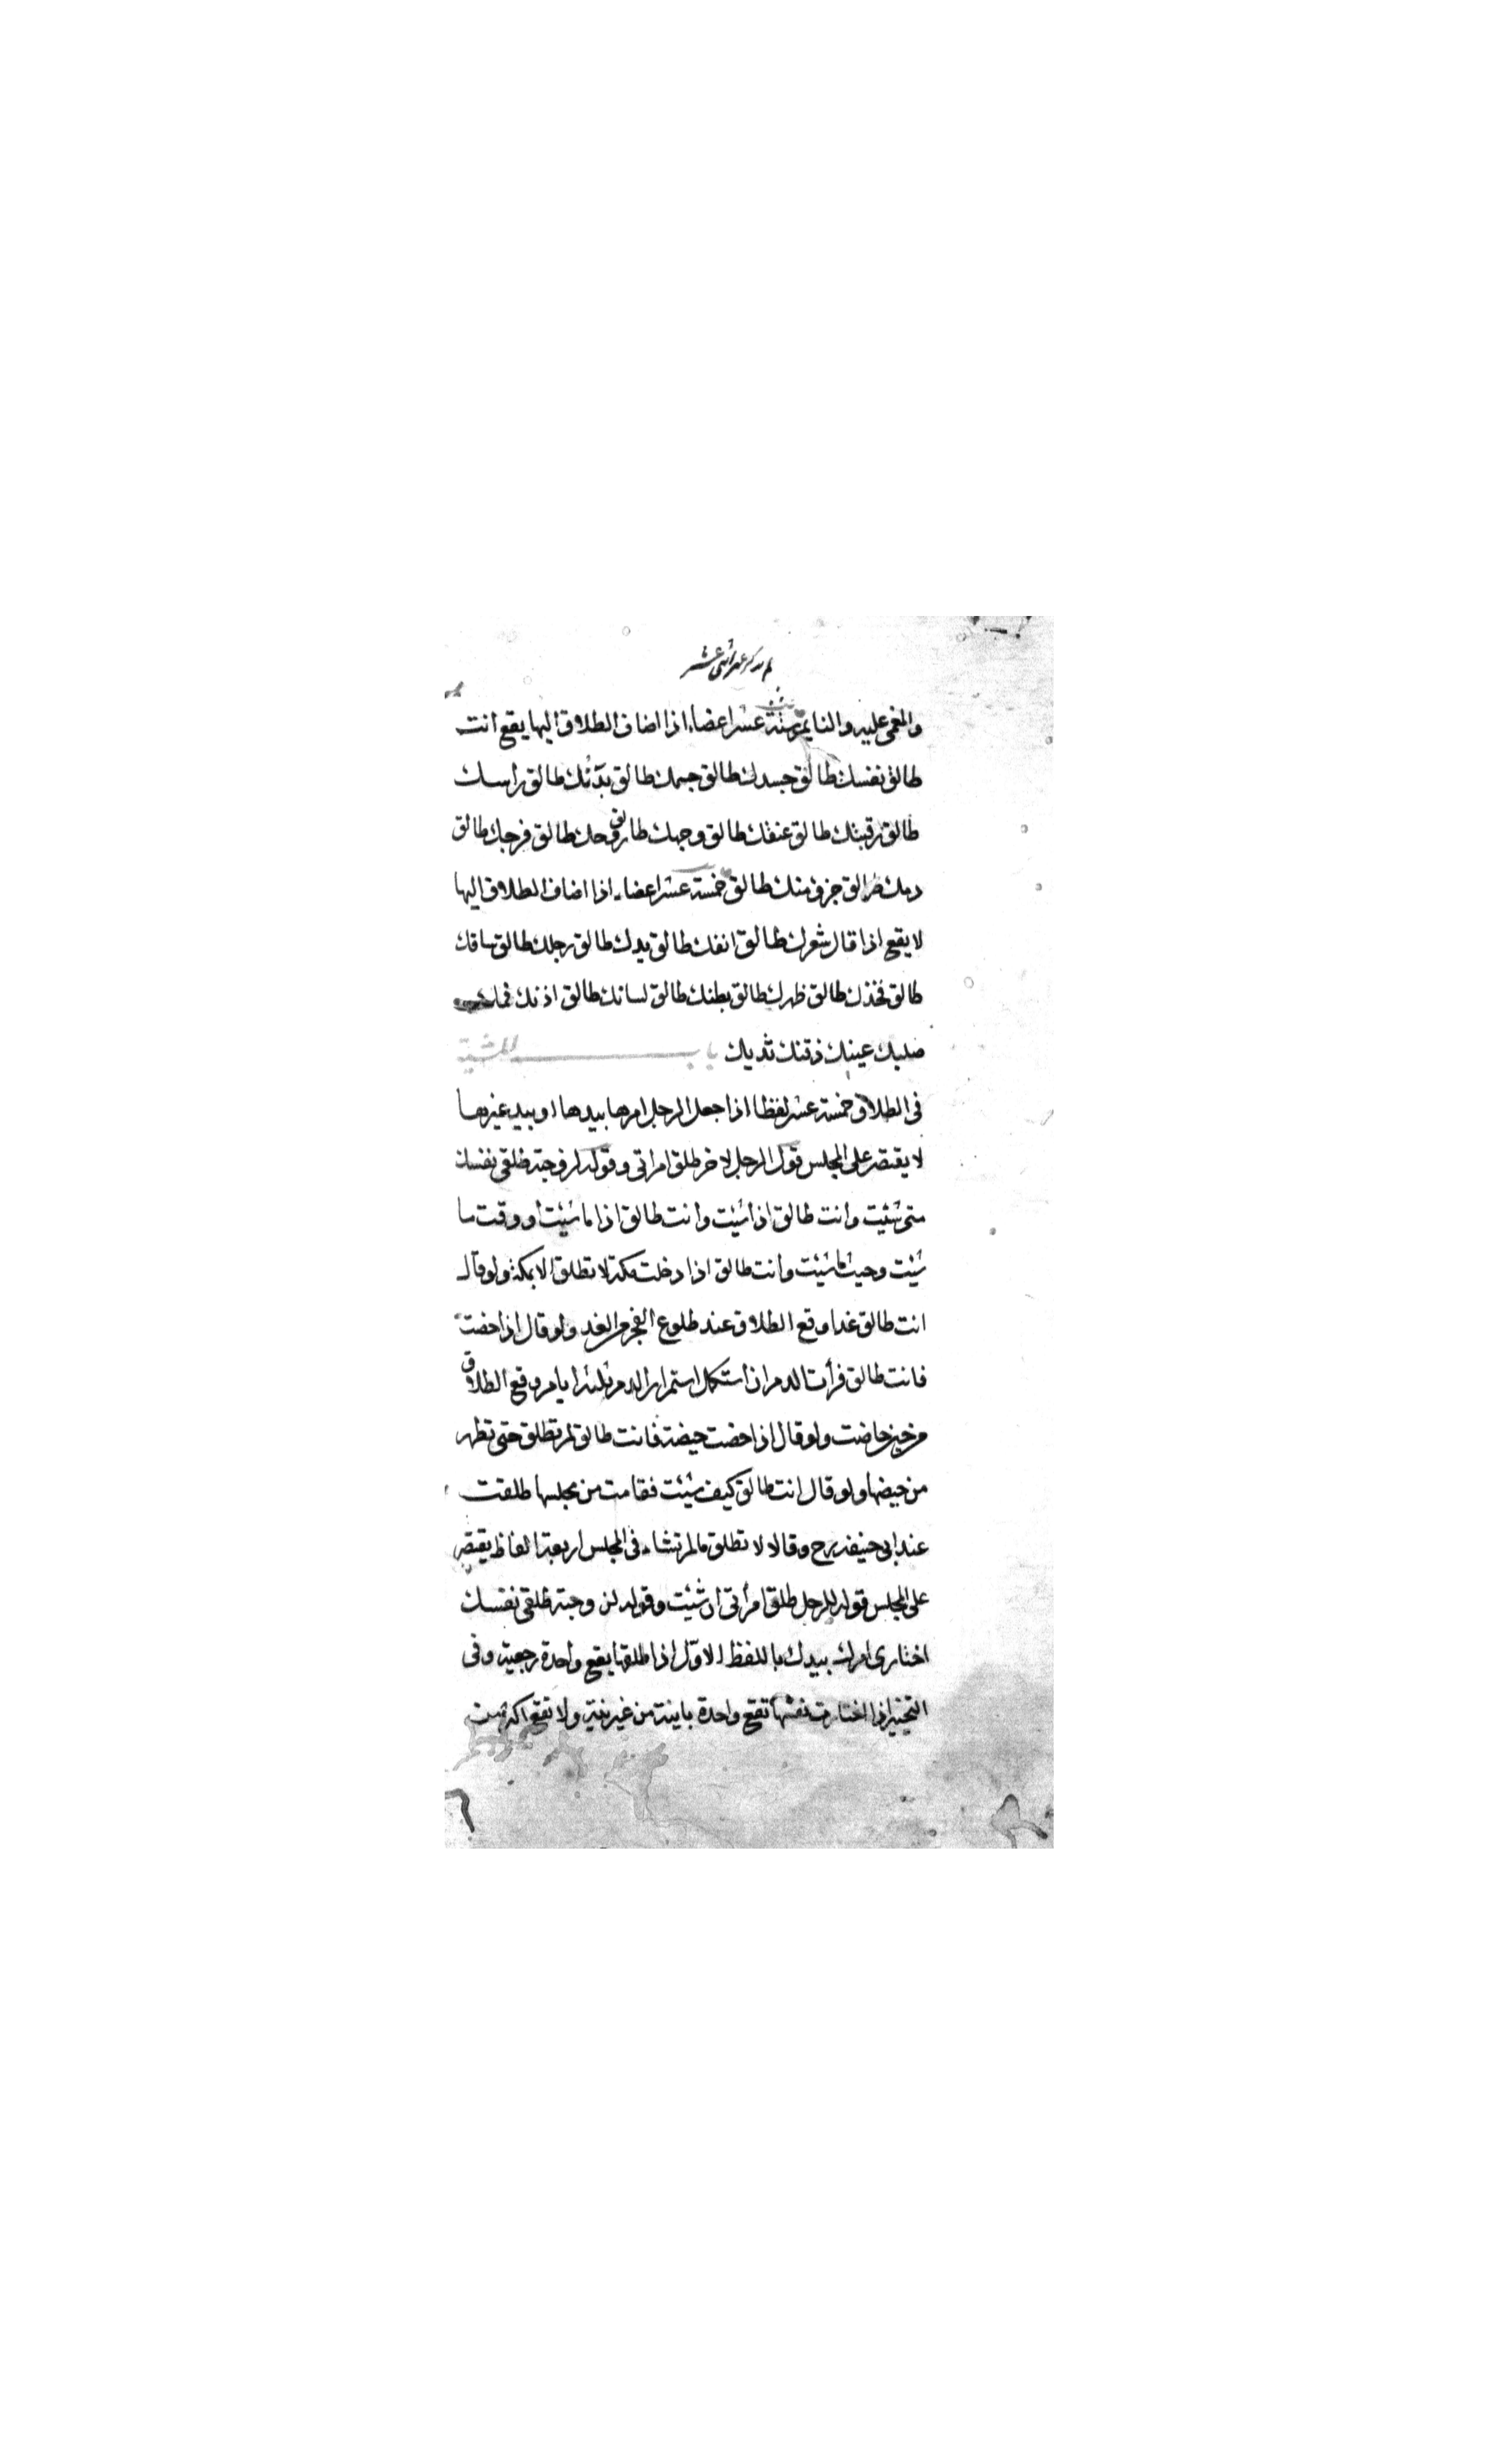 لم يذكر غير اثنى عشر
والمغمى عليه والنايم ستة عشر اعضاء اذا اضاف الطلاق اليها يقع انت
طالق نفسك طالق جسدك طالق جسمك طالق بدنك طالق راسك
طالق رقبتك طالق عنقك طالق وجهك طالق روحك طالق فرجك طالق
دمك طالق جزؤ منك طالق خمسة عشر اعضاء اذا اضاف الطلاق اليها
لا يقع اذا قال شعرك طالق انفك طالق يدك طالق رجلك طالق ساقك
طالق فخذك طالق ظهرك طالق بطنك طالق لسانك طالق اذنك فمك
صلبك عينك ذقنك ثديك باب المشية
فى الطلاق خمسة عشر لفظا اذا جعل الرجل امرها بيدها او بيد غيرها
لا يقتصر على المجلس قول الرجل لاخر طلق امراتى وقوله لزوجته طلقى نفسك
متى شئت وانت طالق اذا شئت وانت طالق اذا ما شئت او وقت ما
شئت وحيث ما شئت وانت طالق اذا دخلت مكة لا تطلق الا بمكة ولو قال
انت طالق غدا وقع الطلاق عند طلوع الفجر من الغد ولو قال اذا حضت
فانت طالق فرأت الدم ان استكمل استمرار الدم ثلثة ايام وقع الطلاق
من حين حاضت ولو قال اذا حضت حيضة فانت طالق لم تطلق حتى تطهر
من حيضها ولو قال انت طالق كيف شئت فقامت من مجلسها طلقت
عند ابى حنيفة رح وقالا لا تطلق ما لم تشاء فى المجلس اربعة الفاظ يقتصر
على المجلس قوله للرجل طلق امرأتى ان شئت وقوله لزوجته طلقى نفسك
اختارى امرك بيدك باللفظ الاوّل اذا طلقها يقع واحدة رجعية وفى
التخيير اذا اختارت نفسها تقع واحدة باينة من غير نية ولا تقع اكثر